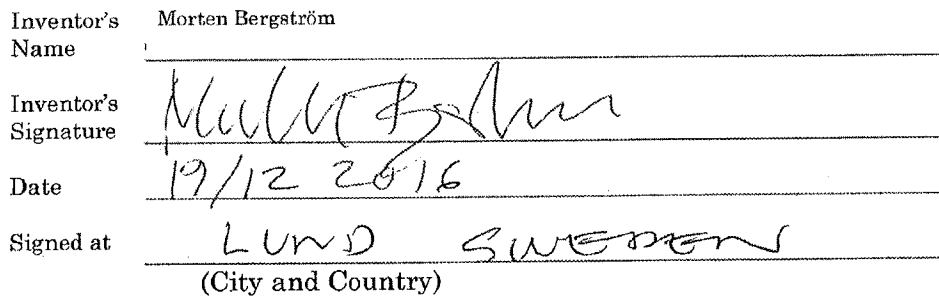 Inventor's Name Morten Bergström
Inventor's Signature
Date 19/12 2016
Signed at LUND SWEDEN
(City and Country)